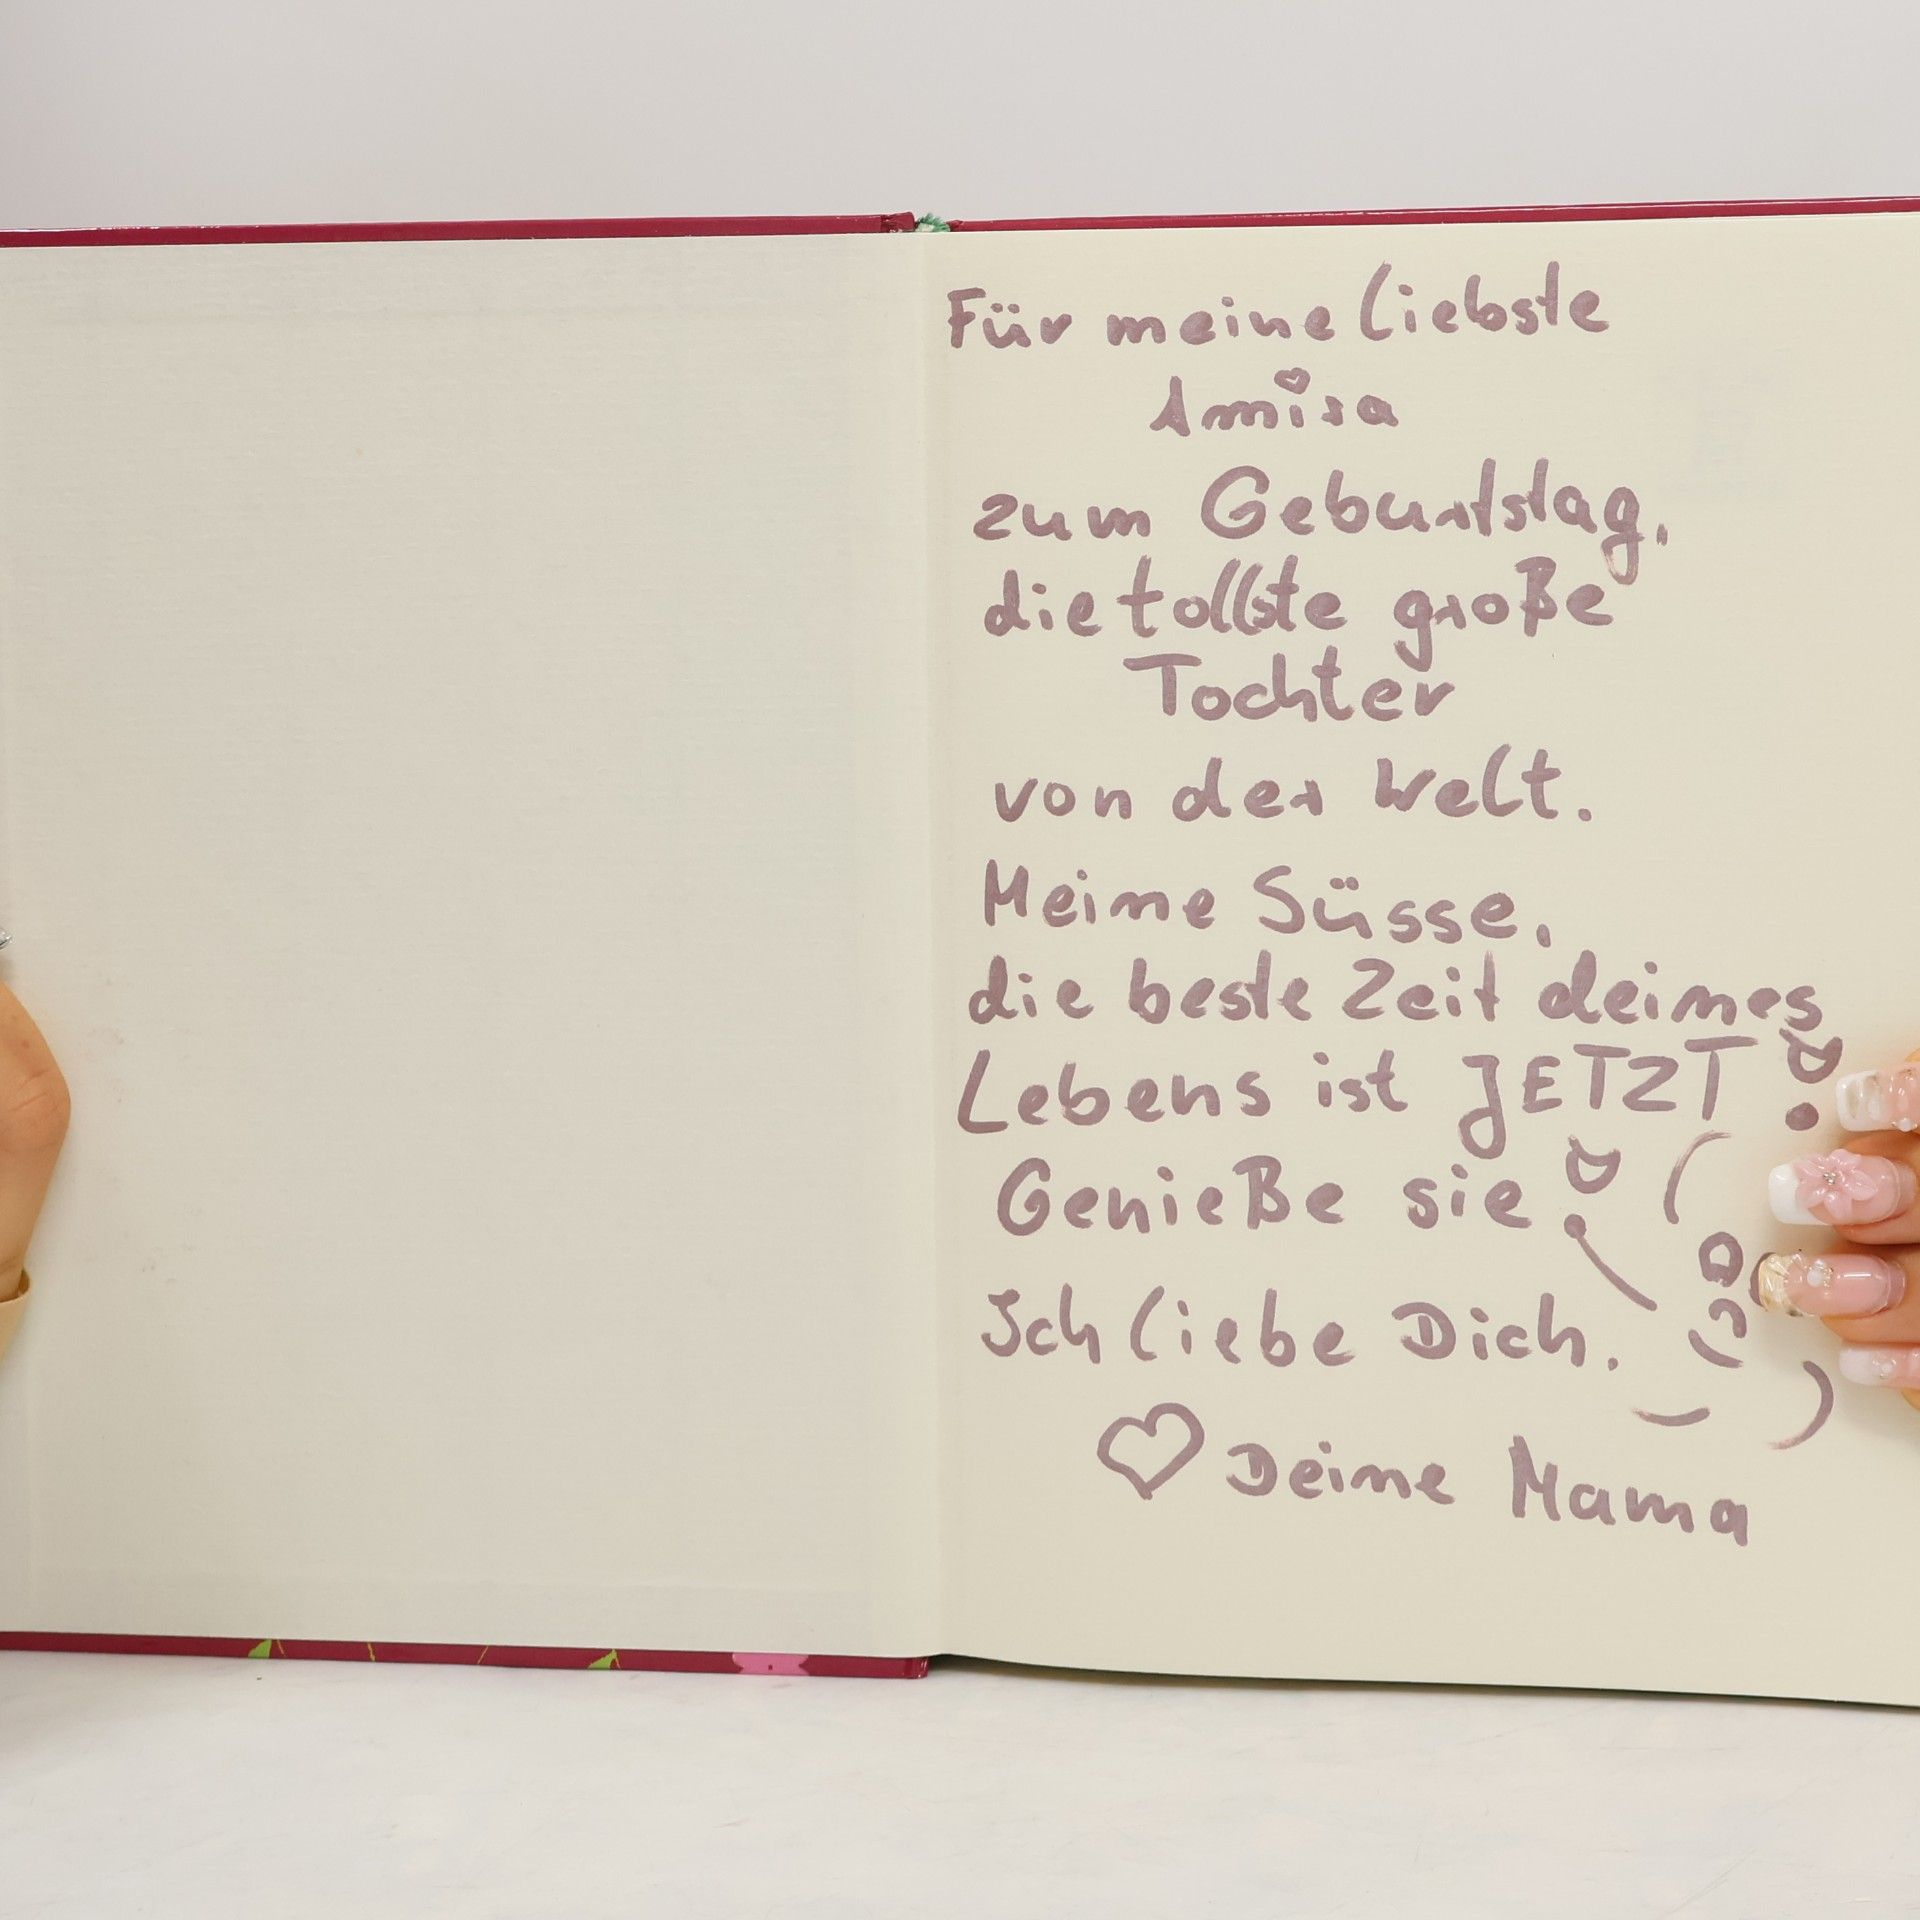 Für meine liebste
Amira
zum Geburtstag,
die tollste große
Tochter
von der Welt.
Meine Süsse,
die beste Zeit deines
Lebens ist JETZT!
Genieße sie!
Ich liebe Dich.
Deine Mama